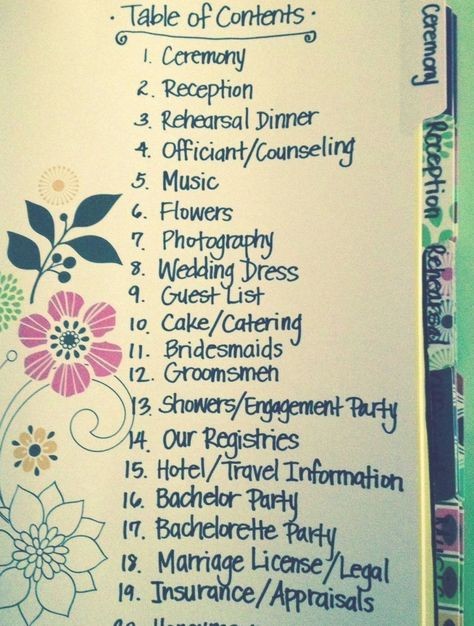 · Table of Contents ·
1. Ceremony
2. Reception
3. Rehearsal Dinner
4. Officiant/Counseling
5. Music
6. Flowers
7. Photography
8. Wedding Dress
9. Guest List
10. Cake/Catering
11. Bridesmaids
12. Groomsmen
13. Showers/Engagement Party
14. Our Registries
15. Hotel/Travel Information
16. Bachelor Party
17. Bachelorette Party
18. Marriage License/Legal
19. Insurance/Appraisals
Ceremony
Reception
Rehearsal